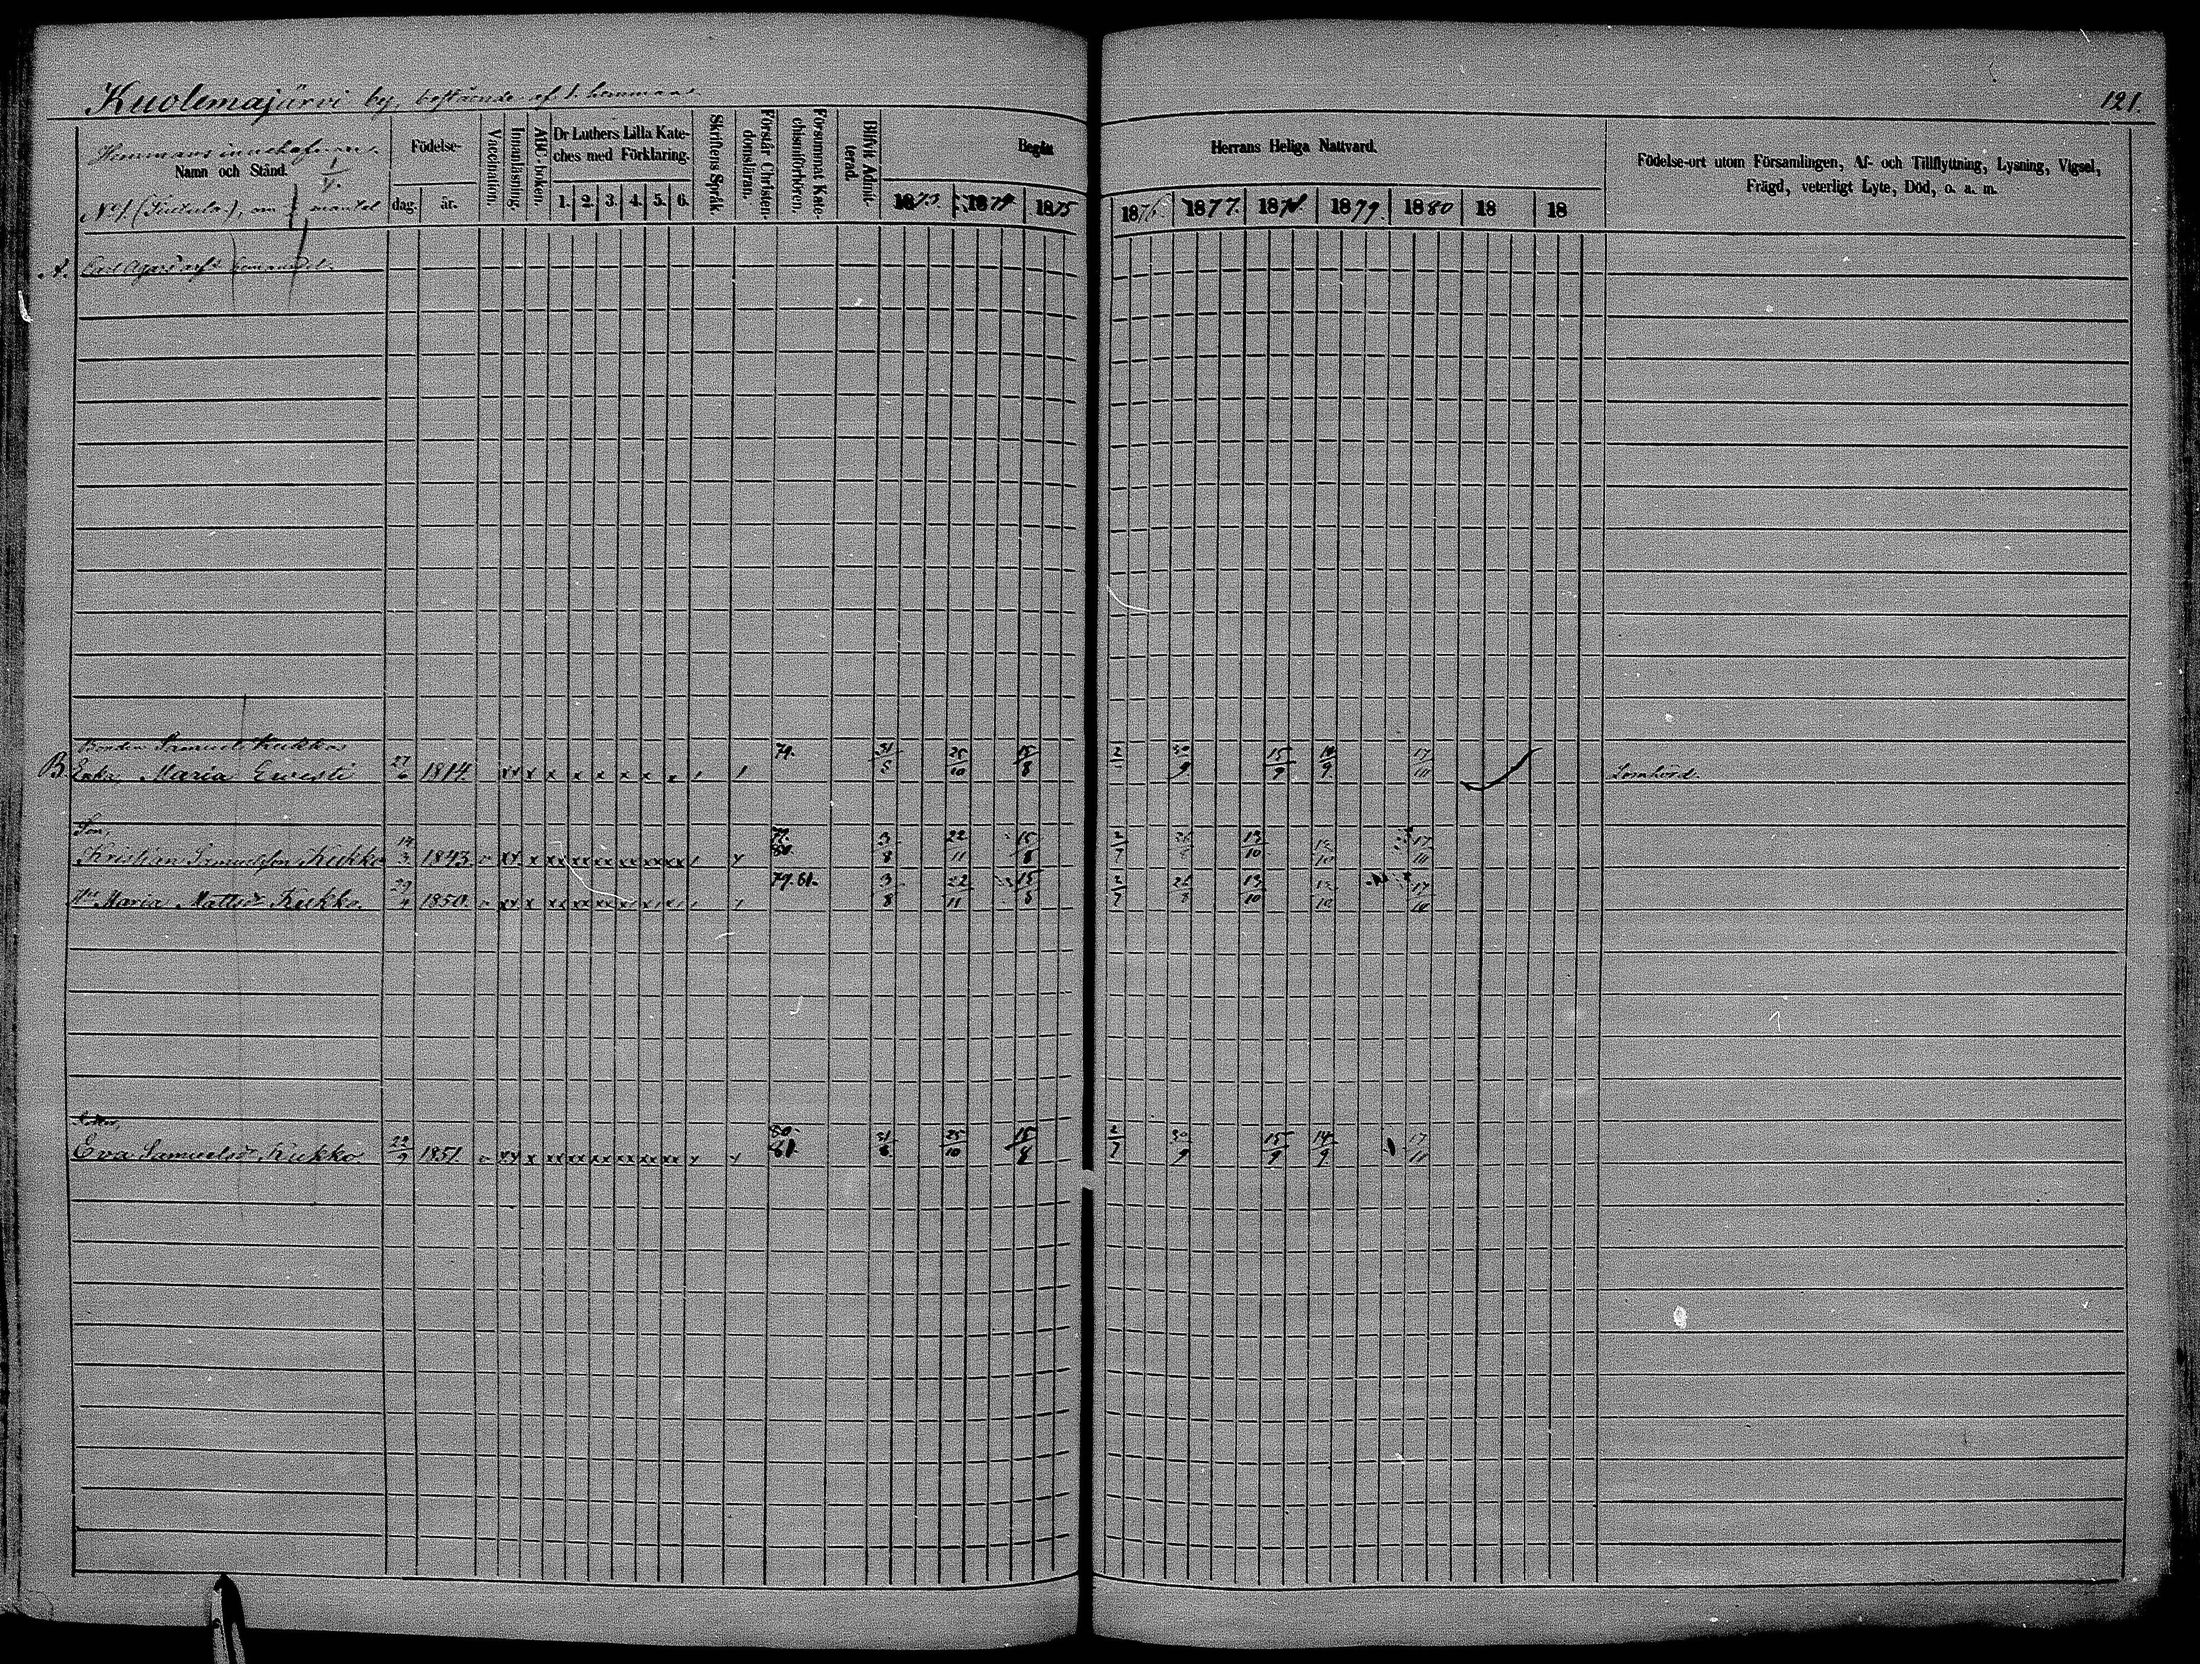 Kuolemajärvi by, bestående af 1. hemman.
121.
Hemmans innehafvare.
Namn och Stånd.
Födelse-
dag. år.
Vaccination.
Innanläsning.
ABC-boken.
Dr Luthers Lilla Kate-
ches med Förklaring.
1. 2. 3. 4. 5. 6.
Skriftens Språk.
Förstår Christen-
domsläran.
Försummat Kate-
chismiförhören.
Blifvit Admit-
terad.
Begått Herrans Heliga Nattvard.
1873. 1874 1875 1876. 1877. 1878. 1879. 1880 18 18
Födelse-ort utom Församlingen, Af- och Tillflyttning, Lysning, Vigsel,
Frägd, veterligt Lyte, Död, o. a. m.
mantel
A.
Bonden Samuel Kukkos
B. Enka, Maria Ervesti 27/6 1814. x x x x x x 79. 31/5 25/10 15/8 30/9 15/9 14/9 17/10 Lomhörd.
Son,
Kristian Samuelsson Kukko 14/3 1843. xx x xx xx xx xx xx xx 3/8 22/11 15/8 2/7 26/8 13/10 17/10
Hu Maria Mattsdr Kukko. 29/9 1850. xx x xx xx xx 79. 81. 3/8 22/11 15/8 2/7 26/8 13/10 17/10
Dotter,
Eva Samuelsdr Kukko. 22/9 1851 xx x xx xx xx xx xx xx 80. 81. 25/10 15/8 2/7 30/9 15/9 14/9 17/10